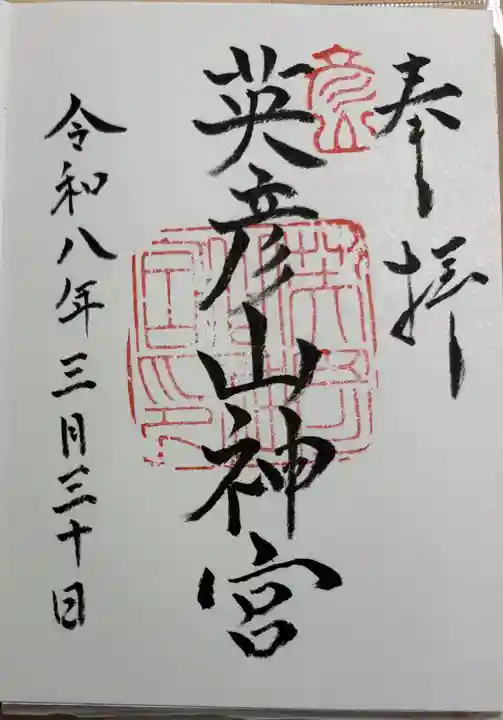 奉拝
英彦山神宮
令和八年三月三十日